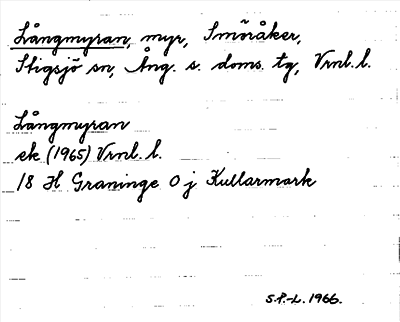 Långmyran, myr, Smöråker,
Stigsjö sn, Ång. s. doms. tg, Vrnl. l.
Långmyran
ek (1965) Vrnl. l.
18 H Graninge 0 j Kullarmark
S.P.-L. 1966.